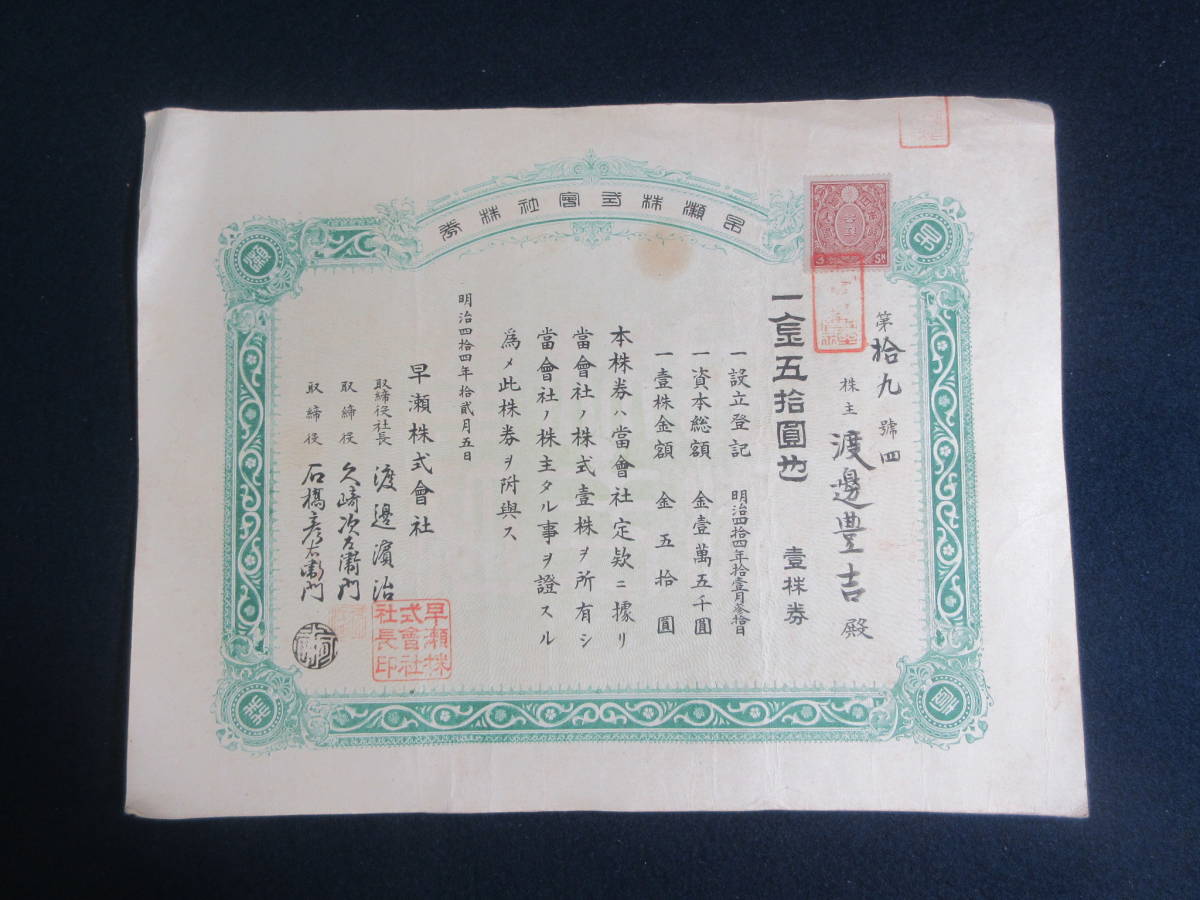 早瀬株式會社株券
第拾九號四
株主 渡邊豊吉殿
一金五拾圓也 壹株券
一設立登記 明治四拾四年拾壹月参拾日
一資本総額 金壹萬五千圓
一壹株金額 金五拾圓
本株券ハ當會社定欵ニ據リ
當會社ノ株式壹株ヲ所有シ
當會社ノ株主タル事ヲ證スル
爲メ此株券ヲ附與ス
明治四拾四年拾貳月五日
早瀬株式會社
取締役社長 渡邉濱治
取締役 久﨑次左衞門
取締役 石橋彦右衞門
早瀬株
式會社
社長印
3 Sn